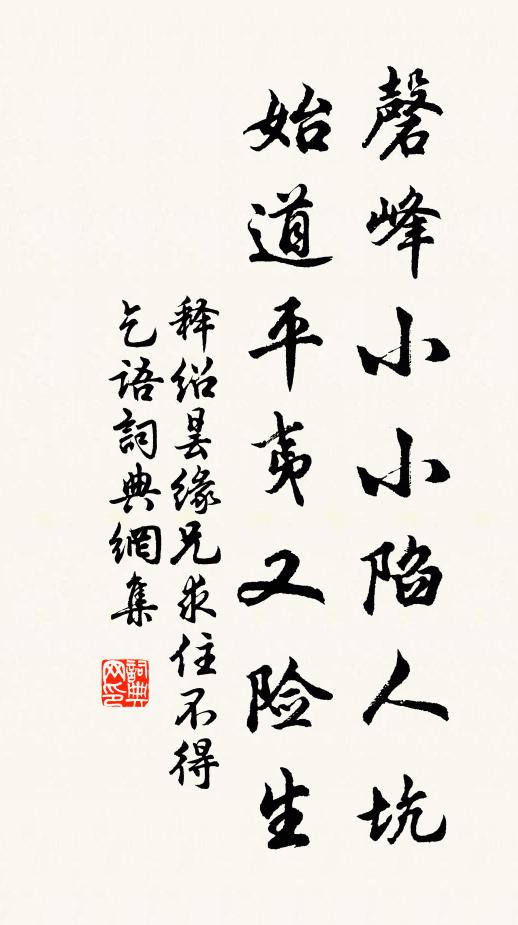 磬峰小小陷人坑
始道平夷又险生
释绍昙缘兄求住不得
乞语詞典網集
詞典
网印